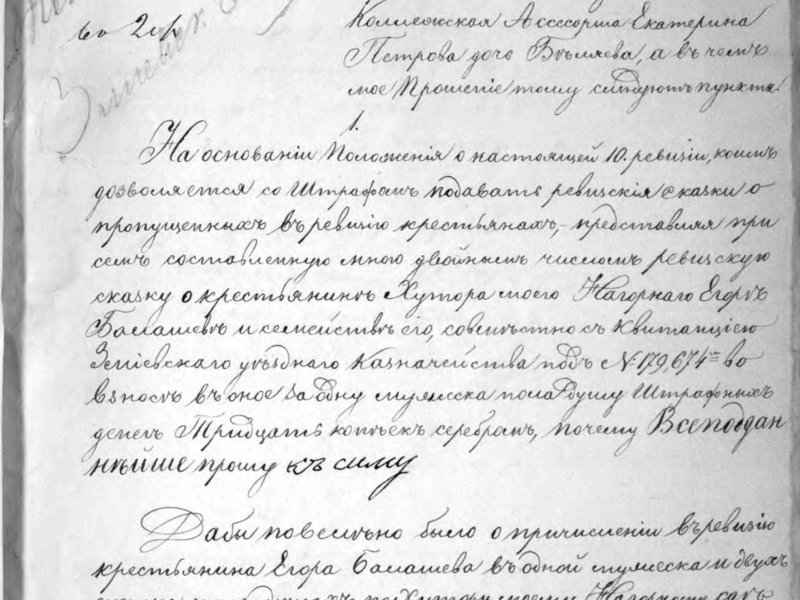 во 2ой
Колležская Ассесорша Екатерина
Петрова дочь Бѣляева, а въ чемъ
мое Прошеніе тому слѣдуютъ пункты:
1.
На основаніи Положенія о настоящей 10. ревизіи, коимъ
дозволяется со Штрафомъ подавать ревизскія сказки о
пропущенныхъ въ ревизію крестьянахъ,- представляя при
семъ составленную мною двойнымъ числомъ ревизскую
сказку о крестьянинѣ Хутора моего Нагорнаго Егорѣ
Балашевѣ и семействѣ его, совмѣстно съ Квитанціею
Зміевскаго уѣзднаго Казначейства подъ № 179,674м во
взносѣ въ оное за одну мужеска пола душу Штрафныхъ
денегъ Тридцать копѣекъ серебромъ, почему Всеподдан
нѣйше прошу къ сему
Дабы повелѣно было о причисленіи въ ревизію
крестьянина Егора Балашева въ одной мужеска и двухъ
по Хутору моему Нагорному